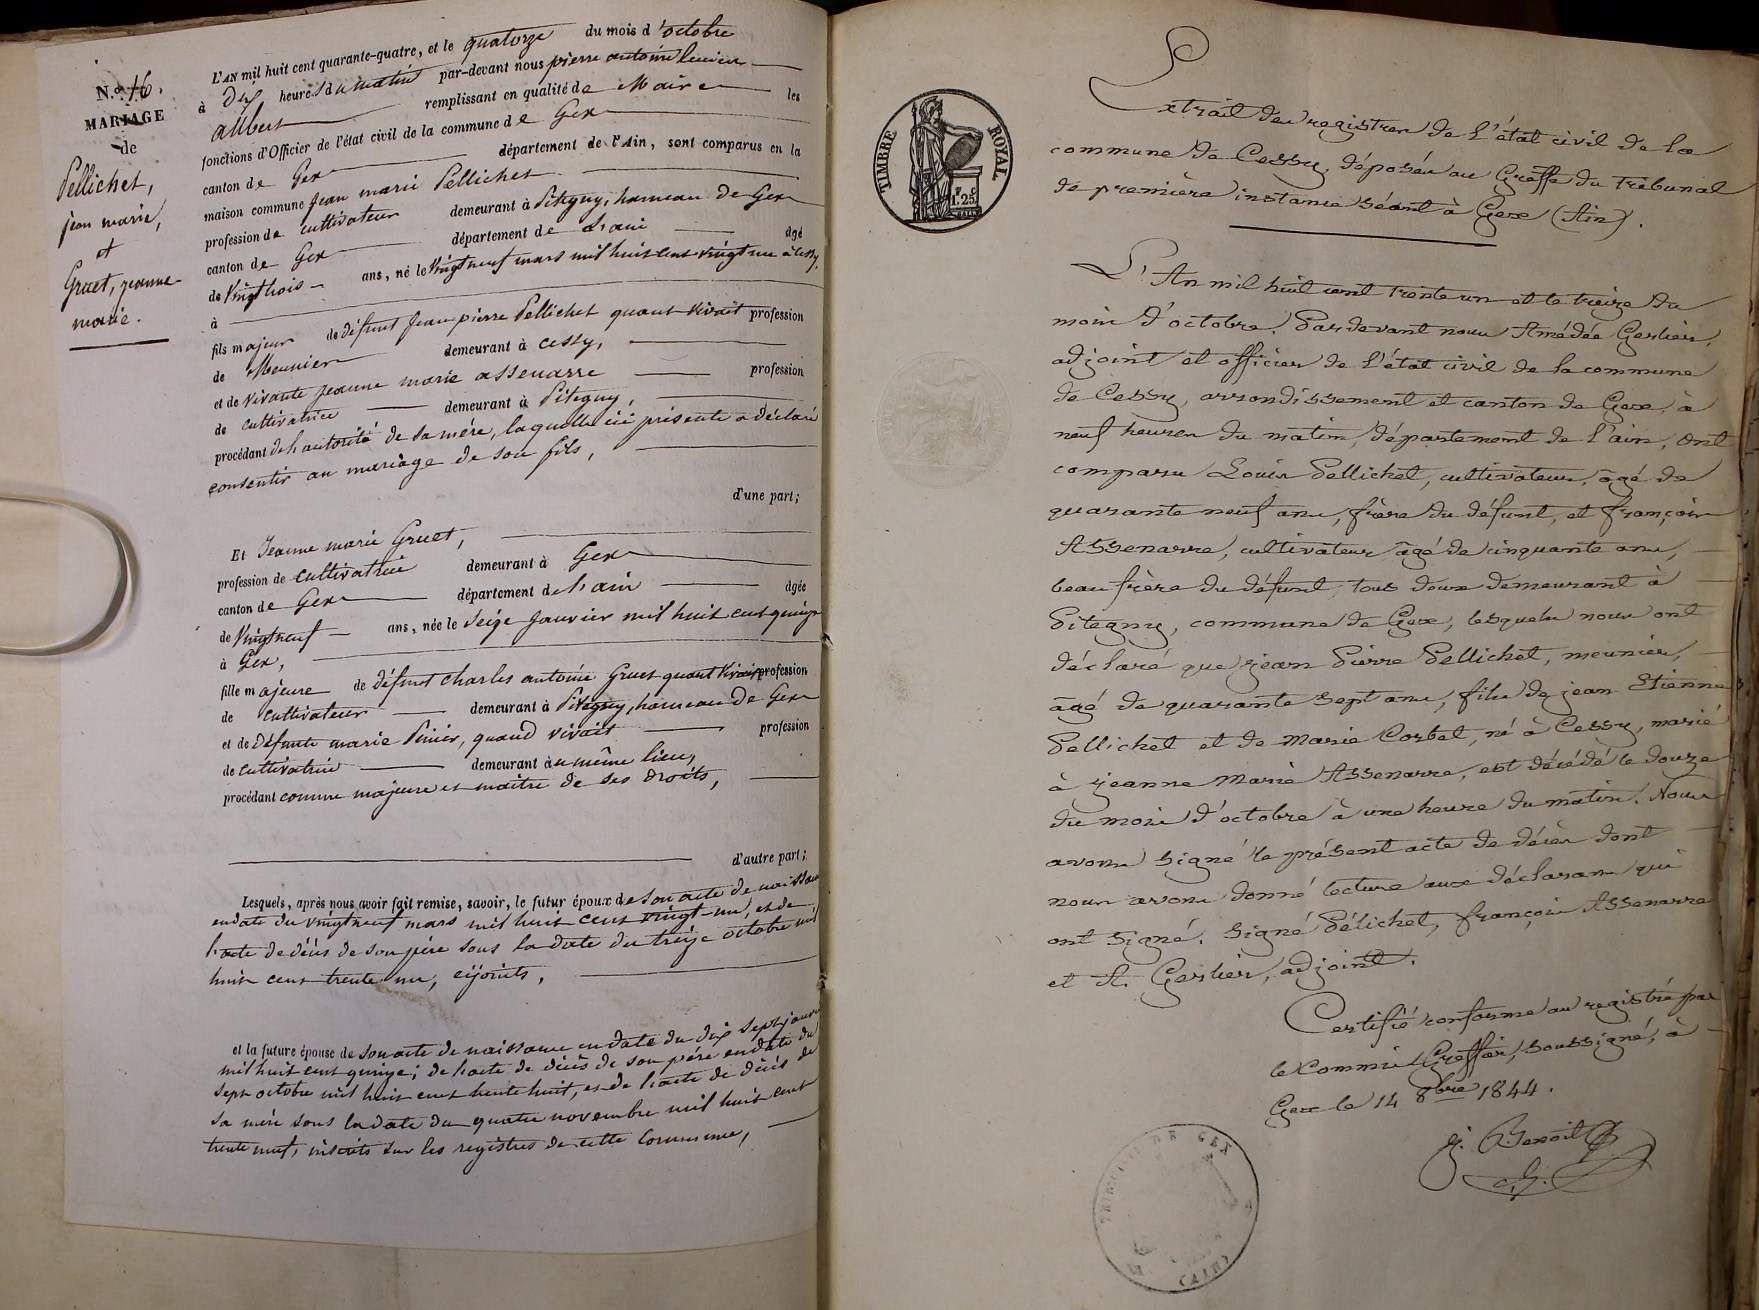 N.º 16.
MARIAGE
de
Pellichet,
jean marie,
et
Gruet, jeanne
marie.
L'AN mil huit cent quarante-quatre, et le quatorze du mois d'octobre
à dix heures du matin par-devant nous pierre antoine lucien
allbert remplissant en qualité de Maire les
fonctions d'Officier de l'état civil de la commune de Gex
canton de Gex département de l'Ain, sont comparus en la
maison commune Jean marie Pellichet
profession de cultivateur demeurant à Pitegny, hameau de Gex
canton de Gex département de L'ain âgé
de vingt trois ans, né le vingt neuf mars mil huit cent vingt un à Cessy,
à
fils majeur de défunt Jean pierre Pellichet quant vivait profession
de Meunier demeurant à Cessy,
et de vivante jeanne marie assenarre profession
de cultivatrice demeurant à Pitegny,
procédant de l'autorité de sa mère, laquelle ici présente a déclaré
consentir au mariage de son fils,
d'une part;
Et Jeanne marie Gruet,
profession de cultivatrice demeurant à Gex
canton de Gex département de L'ain âgée
de vingt neuf ans, née le seize janvier mil huit cent quinze
à Gex,
fille majeure de défunt charles antoine Gruet quant vivait profession
de cultivateur demeurant à Pitegny, hameau de Gex
et de défunte marie Pinier, quand vivait profession
de cultivatrice demeurant au même lieu,
procédant comme majeure et maître de ses droits,
d'autre part;
Lesquels, après nous avoir fait remise, savoir, le futur époux de son acte de naissance
en date du vingt neuf mars mil huit cent vingt-un, et de
l'acte de décès de son père sous la date du treize octobre mil
huit cent trente un, cijoints,
et la future épouse de son acte de naissance en date du dix sept janvier
mil huit cent quinze; de l'acte de décès de son père en date du
sept octobre mil huit cent trente huit, et de l'acte de décès de
sa mère sous la date du quatre novembre mil huit cent
trente neuf, inscrits sur les registres de cette commune,
TIMBRE ROYAL
1.25
Extrait des registres de l'état civil de la
commune de Cessy, déposés au Greffe du Tribunal
de première instance séant à Gex (Ain).
L'An mil huit cent trente un et le treize du
mois d'octobre. Pardevant nous Amédée Gerlier,
adjoint et officier de l'état civil de la commune
de Cessy, arrondissement et canton de Gex, à
neuf heures du matin, département de l'ain, ont
comparu Louis Pellichet, cultivateur, âgé de
quarante neuf ans, frère du défunt, et françois
Assenarre, cultivateur âgé de cinquante ans,
beau frère du défunt, tous deux demeurant à
Pitegny, commune de Gex, lesquels nous ont
déclaré que jean Pierre Pellichet, meunier,
âgé de quarante sept ans, fils de jean Etienne
Pellichet et de Marie Corbet, né à Cessy, marié
à jeanne Marie Assenarre, est décédé le douze
du mois d'octobre à une heure du matin. Nous
avons signé le présent acte de décès dont
nous avons donné lecture aux déclarans qui
ont signé. Signé Pélichet, françois Assenarre
et A. Gerlier, adjoint.
Certifié conforme au registre par
le Commis Greffier, soussigné, à
Gex le 14 8bre 1844.
J. Benoit
TRIBUNAL DE GEX
(AIN)